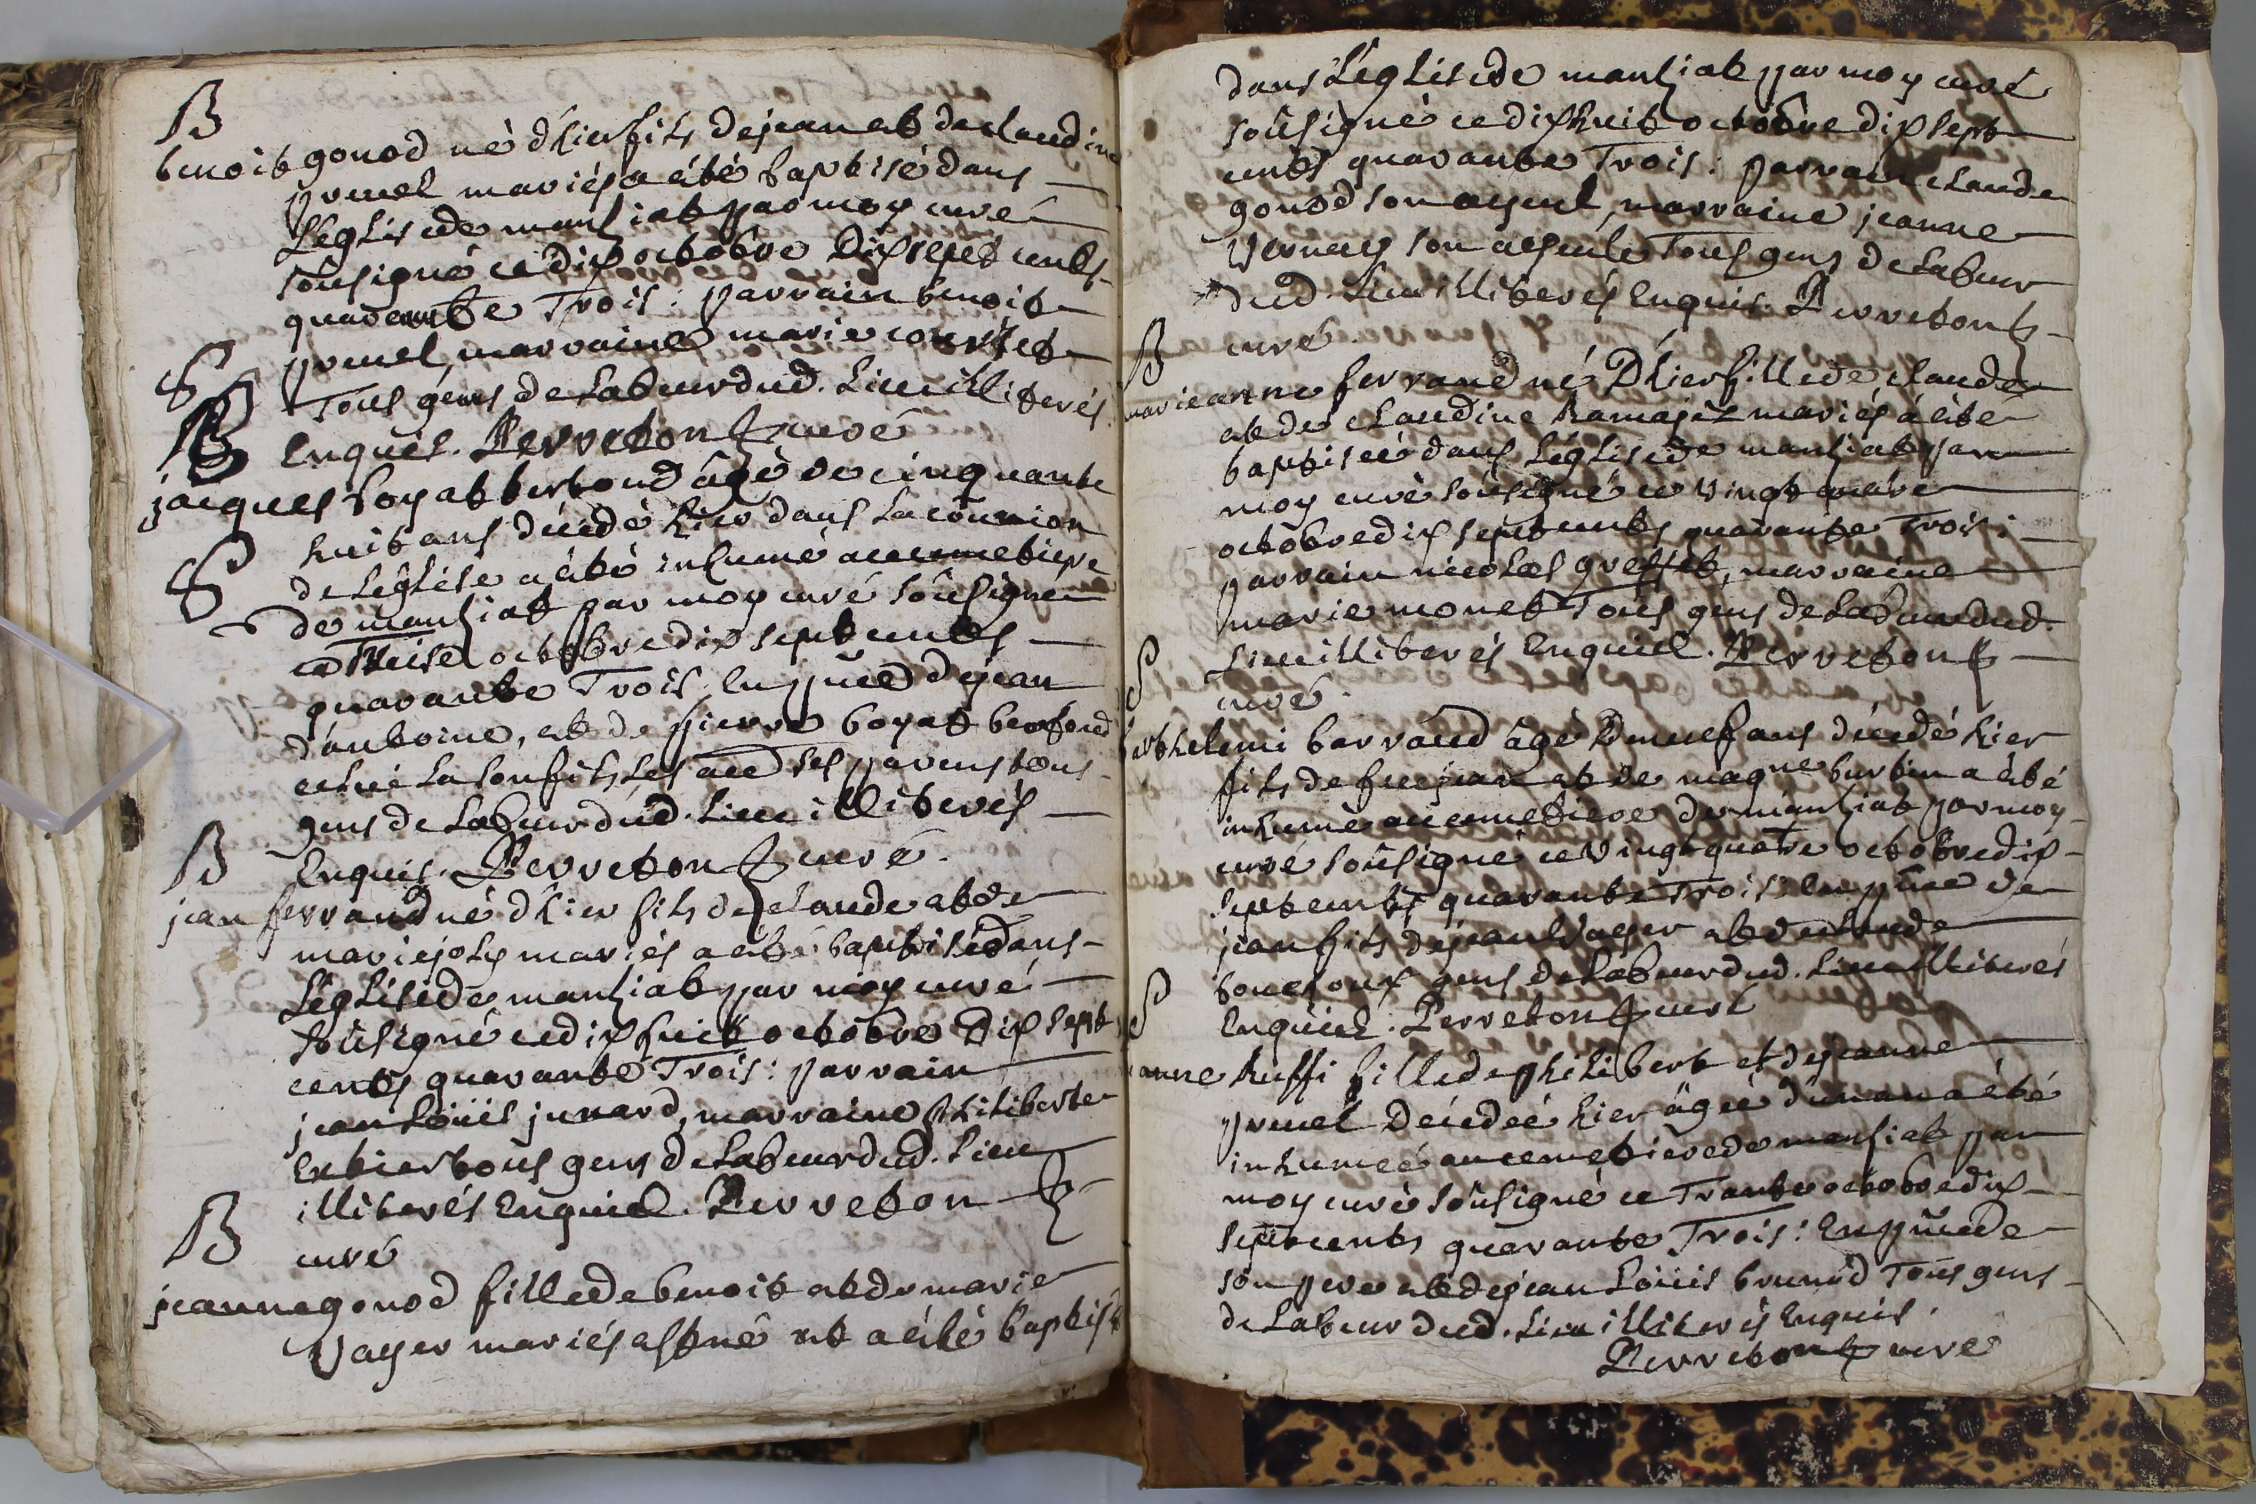 B
benoit gonod né d'hier fils de jean et de claudine
pruel mariés a été baptisé dans
L'église de manziat par moy curé
soûsigné ce dix octobre Dix sept cents
quarante Trois : parrain benoit
pruel, marraine marie
Tous gens de Labeur dud. Lieu illiterés
Enquis. Perreton curé
S
jacques boyat bertoud âgé de cinquante
huit ans décédé hier dans La communion
de L'église a été inhumé au cemetiere
de manziat par moy curé soûsigné
ce Treise octobre dix sept cents
quarante Trois, En pñce de jean
d'antoine, et de pierre boyat bertoud
celui La son fils, Les aud ses parens tous
gens de Labeur dud. Lieu illiterés
Enquis. Perreton curé.
B
jean ferrand né d'hier fils de claude et de
marie joly mariés a été baptisé dans
L'église de manziat par moy curé
soûsigné ce dix huit octobre Dix sept
cents quarante Trois : parrain
jean Loüis junard, marraine philiberte
tous gens de Labeur dud. Lieu
illiterés Enquis. Perreton
curé
B
jeanne gonod fille de benoit et de marie
Vayer mariés est né et a été baptisé
dans L'église de manziat par moy curé
soûsigné ce dix huit octobre dix sept
cents quarante Trois : parrain claude
gonod son ayeul, marraine jeanne
Vernay son ayeule Tous gens de Labeur
dud. Lieu illiterés Enquis. Perreton
curé.
B
marie anne ferrand né D'hier fille de claude
et de claudine Ramajez mariés a été
baptiseé dans L'église de manziat par
moy curé soûsigné ce Vingt
octobre dix sept cents quarante Trois :
parrain nicolas greffet, marraine
marie monet Tous gens de Labeur dud.
Lieu illiterés Enquis. Perreton
curé.
S
barthelemi barraud âgé De neuf ans décédé hier
fils de feu jean et de magne burtin a été
inhumé au cemetiere de manziat par moy
curé soûsigné ce Vingt quatre octobre dix
sept cents quarante Trois : En pñce de
jean fils de jean Vayer et de claude
gens de Labeur dud. Lieu illiterés
Enquis. Perreton curé
S
jeanne Ruffi fille de philibert et de jeanne
pruel Décedeé hier âgeé d'un an a été
inhumeé au cemetiere de manziat par
moy curé soûsigné ce Trante octobre dix
sept cents quarante Trois : En pñce de
son pere et de jean Loüis brunud Tous gens
de Labeur dud. Lieu illiterés Enquis.
Perreton curé